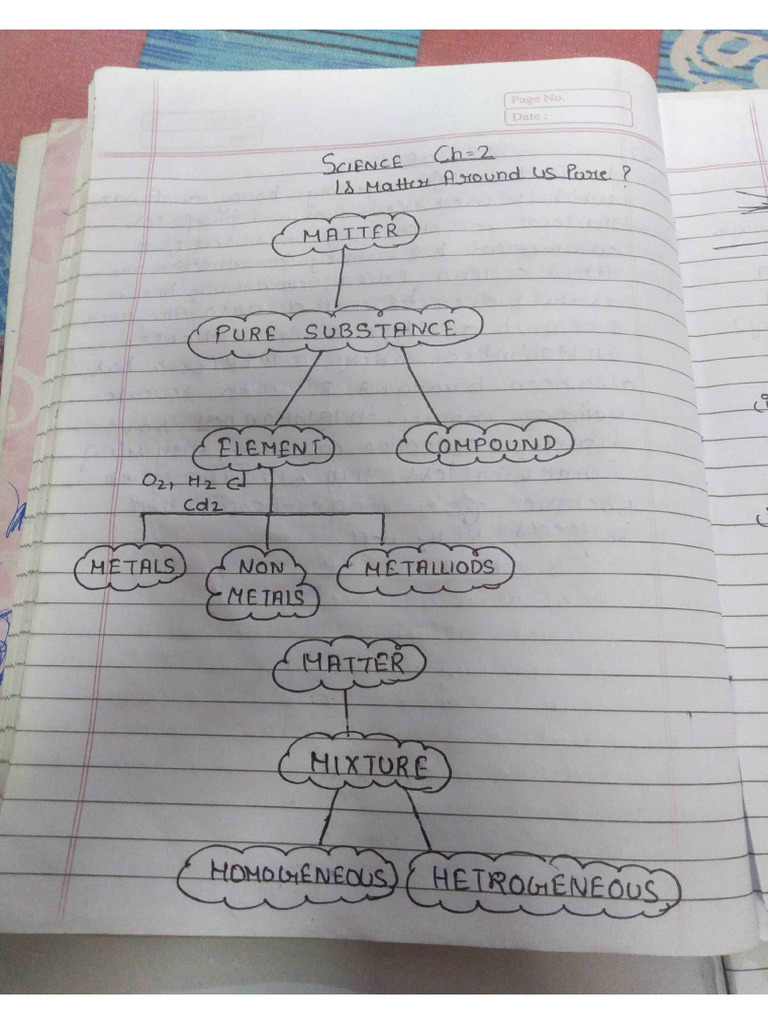 Page No.
Date :
SCIENCE Ch=2
Is Matter Around us Pure ?
MATTER
PURE SUBSTANCE
ELEMENT COMPOUND
O2, H2
Cd2
METALS NON METALLIODS
METALS
MATTER
MIXTURE
HOMOGENEOUS HETROGENEOUS